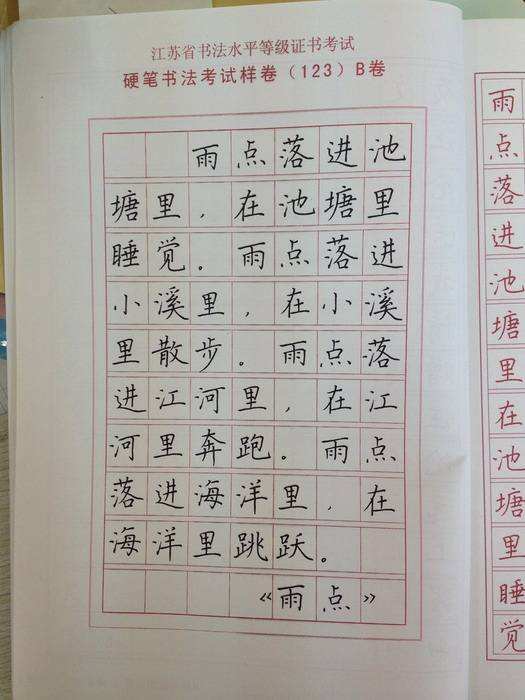 江苏省书法水平等级证书考试
硬笔书法考试样卷（123）B卷
雨点落进池
塘里，在池塘里
睡觉。雨点落进
小溪里，在小溪
里散步。雨点落
进江河里，在江
河里奔跑。雨点
落进海洋里，在
海洋里跳跃。
《雨点》
雨
点
落
进
池
塘
里
在
池
塘
里
睡
觉